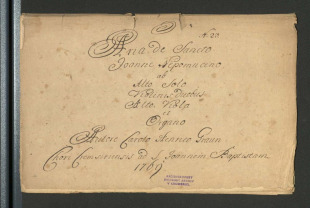 Aria de Sancto
Joanne Nepomuceno
ab
Alto Solo
Violinis Duobus
Alto Viola
et
Organo
Authore Carolo Henrico Graun
Chori Chrudimensis ad S. Joannem Baptistam
1769